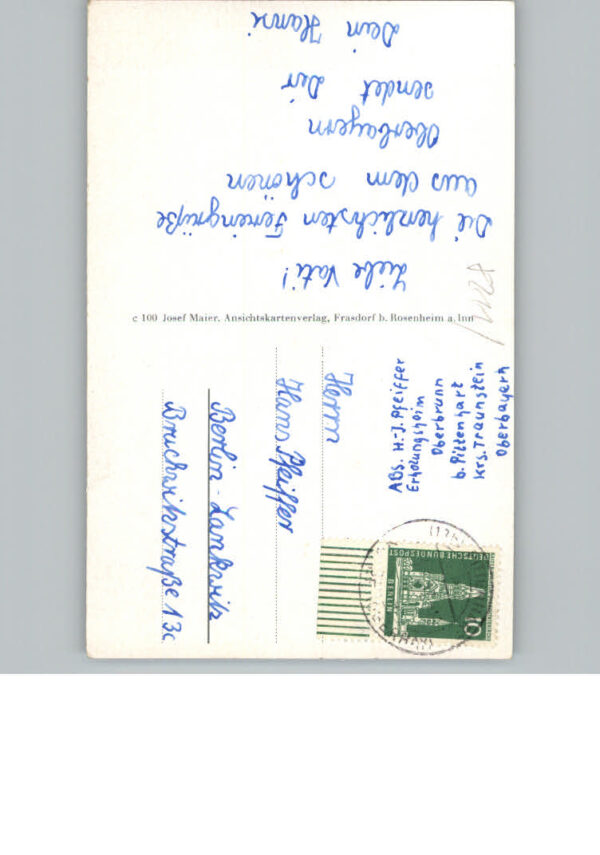 Liebe Vati!
Die herzlichsten Feriengrüße
aus dem schönen
Oberbayern
sendet Dir
Dein Hansi
c 100 Josef Maier, Ansichtskartenverlag, Frasdorf b. Rosenheim a. Inn
Abs. H.-J. Pfeiffer
Erholungsheim
Oberbrunn
b. Pittenhart
Krs. Traunstein
Oberbayern
Herrn
Hans Pfeiffer
Berlin-Lankwitz
Bruchwitzstraße 13c
DEUTSCHE BUNDESPOST
BERLIN
10